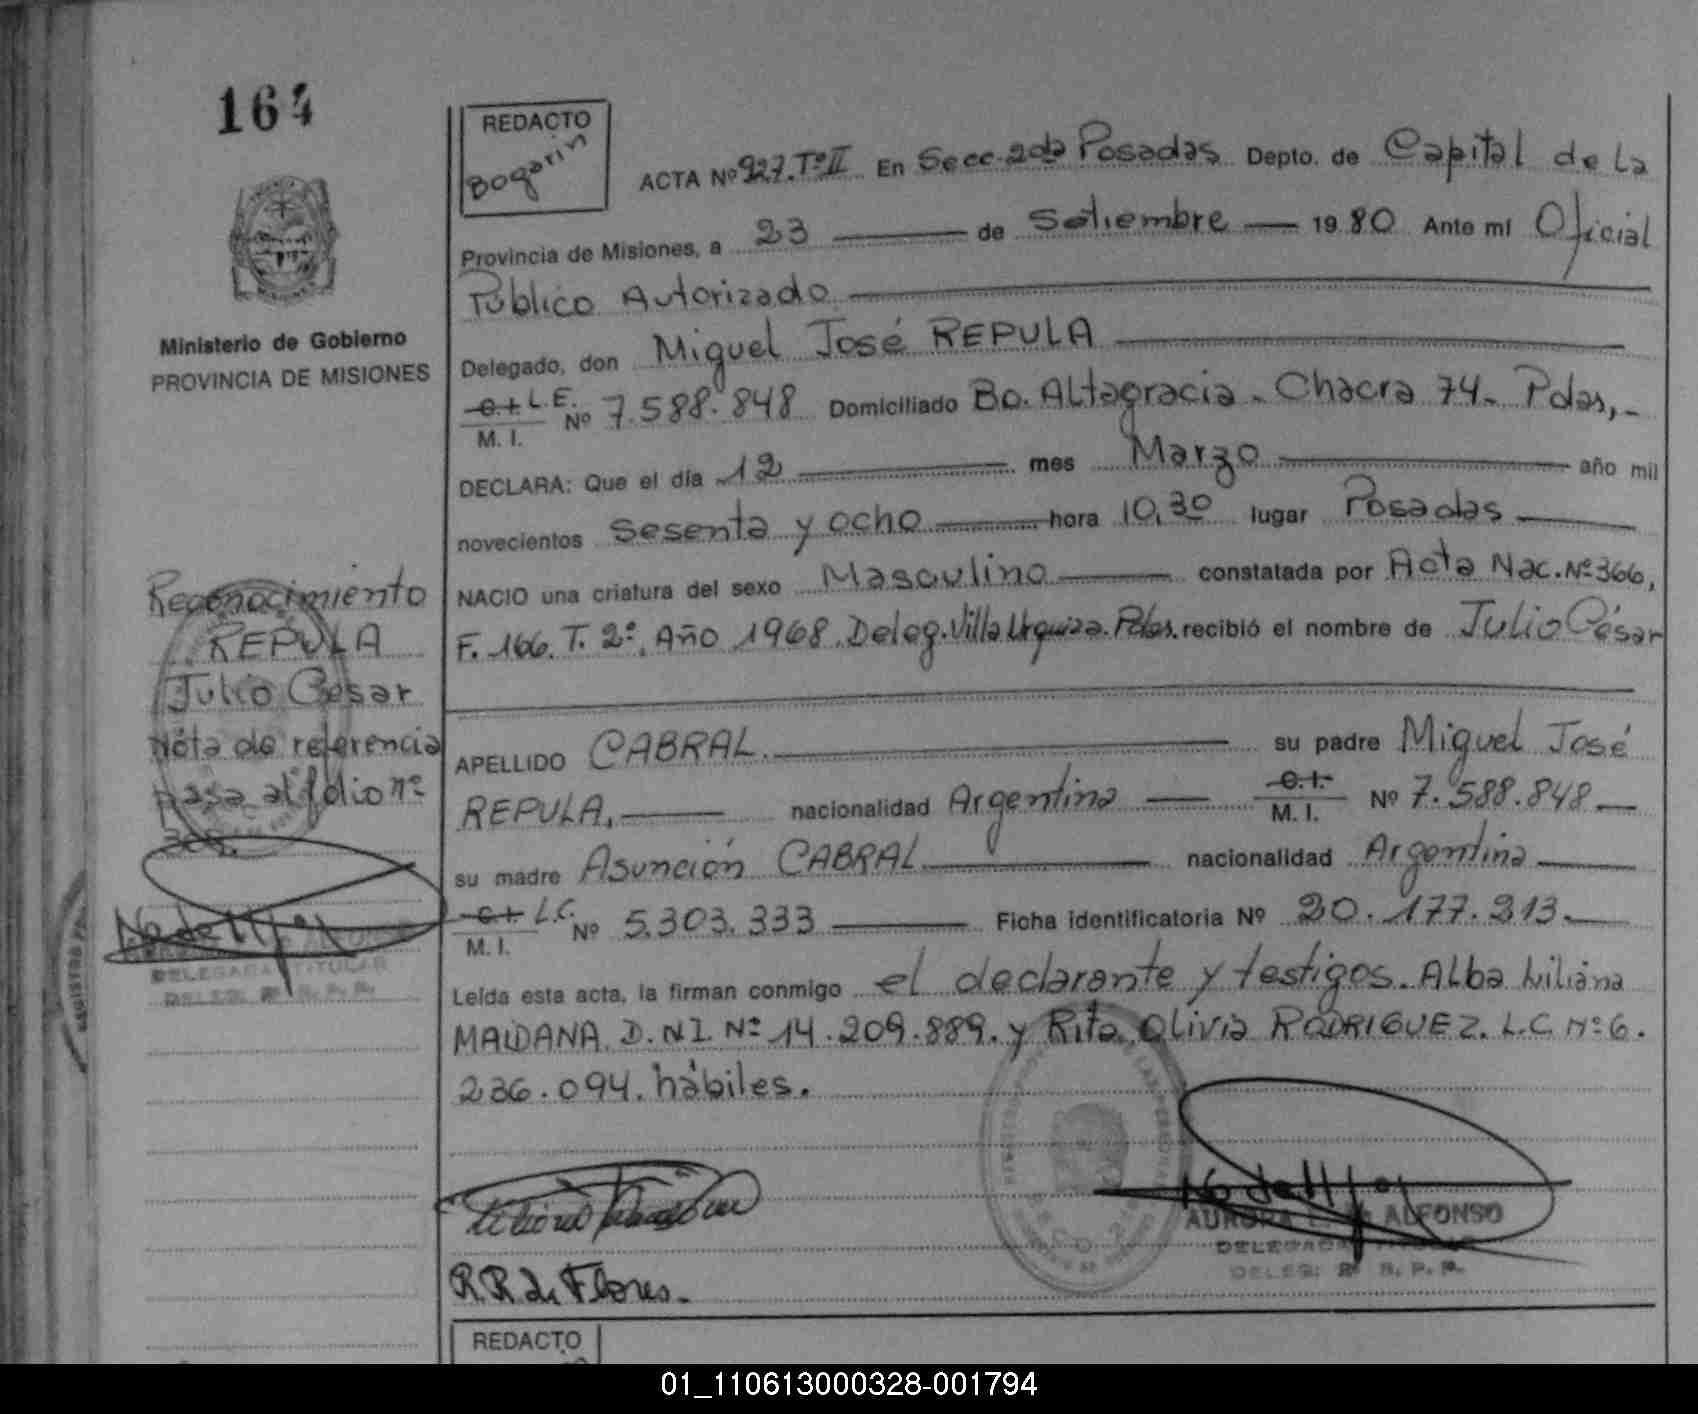 164
REDACTO
Bogarin
ACTA Nº 927. Tº II En Secc. 2da Posadas Depto. de Capital de La
Provincia de Misiones, a 23 de Setiembre 19 80 Ante mí Oficial
Público Autorizado
Delegado, don Miguel José REPULA
C.I. L.E. Nº 7.588.848 Domiciliado Bo. Altagracia - Chacra 74 - Pdas,-
M. I.
DECLARA: Que el día 12 mes Marzo año mil
novecientos sesenta y ocho hora 10,30 lugar Posadas
NACIO una criatura del sexo Masculino constatada por Acta Nac. Nº 366,
F. 166. T. 2º. Año 1968. Deleg. Villa Urquiza. Pdas. recibió el nombre de Julio César
APELLIDO CABRAL. su padre Miguel José
REPULA, nacionalidad Argentina C.I. M. I. Nº 7.588.848
su madre Asunción CABRAL nacionalidad Argentina
C.I. L.C. Nº 5.303.333 Ficha identificatoria Nº 20.177.313.
M. I.
Leída esta acta, la firman conmigo el declarante y testigos. Alba Liliana
MAIDANA D.N.I. Nº 14.209.889. y Rita Olivia RODRIGUEZ. L.C. nº 6.
236.094. hábiles.
AURORA ALFONSO
DELEGADA TITULAR
DELEG. 2ª S. P. P.
R.R. de Flores.
REDACTO
Ministerio de Gobierno
PROVINCIA DE MISIONES
Reconocimiento
REPULA
Julio César
Nota de referencia
pasa al folio nº
DELEGADA TITULAR
DELEG. 2ª S. P. P.
01_110613000328-001794